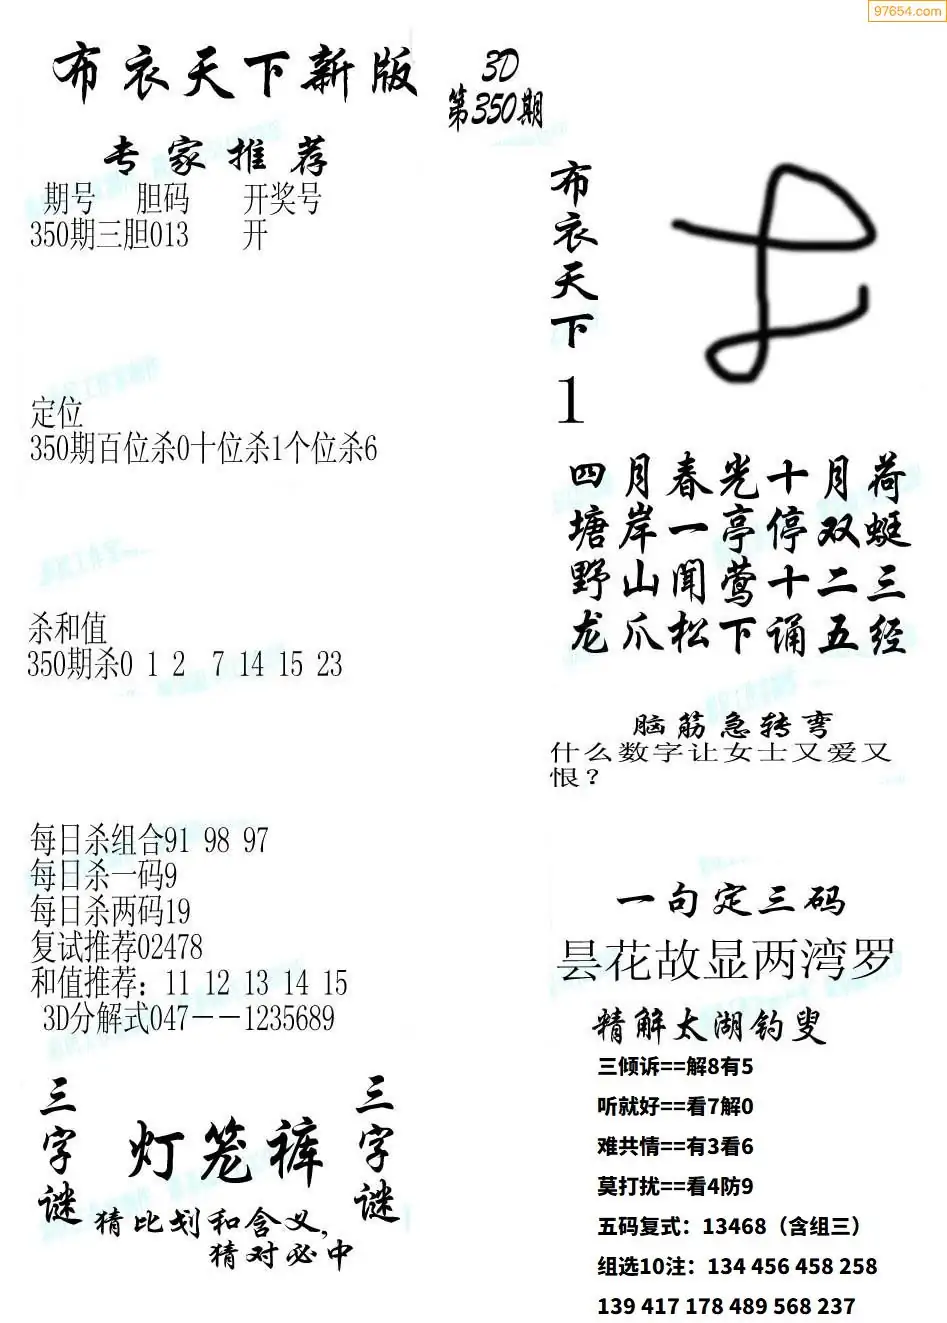 97654.com
布衣天下新版
3D
第350期
专家推荐
期号 胆码 开奖号
350期三胆013 开
定位
350期百位杀0十位杀1个位杀6
杀和值
350期杀0 1 2 7 14 15 23
每日杀组合91 98 97
每日杀一码9
每日杀两码19
复试推荐02478
和值推荐：11 12 13 14 15
3D分解式047－－1235689
三字谜
灯笼裤
三字谜
猜比划和含义，
猜对必中
布衣天下
1
四月春光十月荷
塘岸一亭停双蜓
野山闻莺十二三
龙爪松下诵五经
脑筋急转弯
什么数字让女士又爱又
恨？
一句定三码
昙花故显两湾罗
精解太湖钓叟
三倾诉==解8有5
听就好==看7解0
难共情==有3看6
莫打扰==看4防9
五码复式：13468（含组三）
组选10注：134 456 458 258
139 417 178 489 568 237